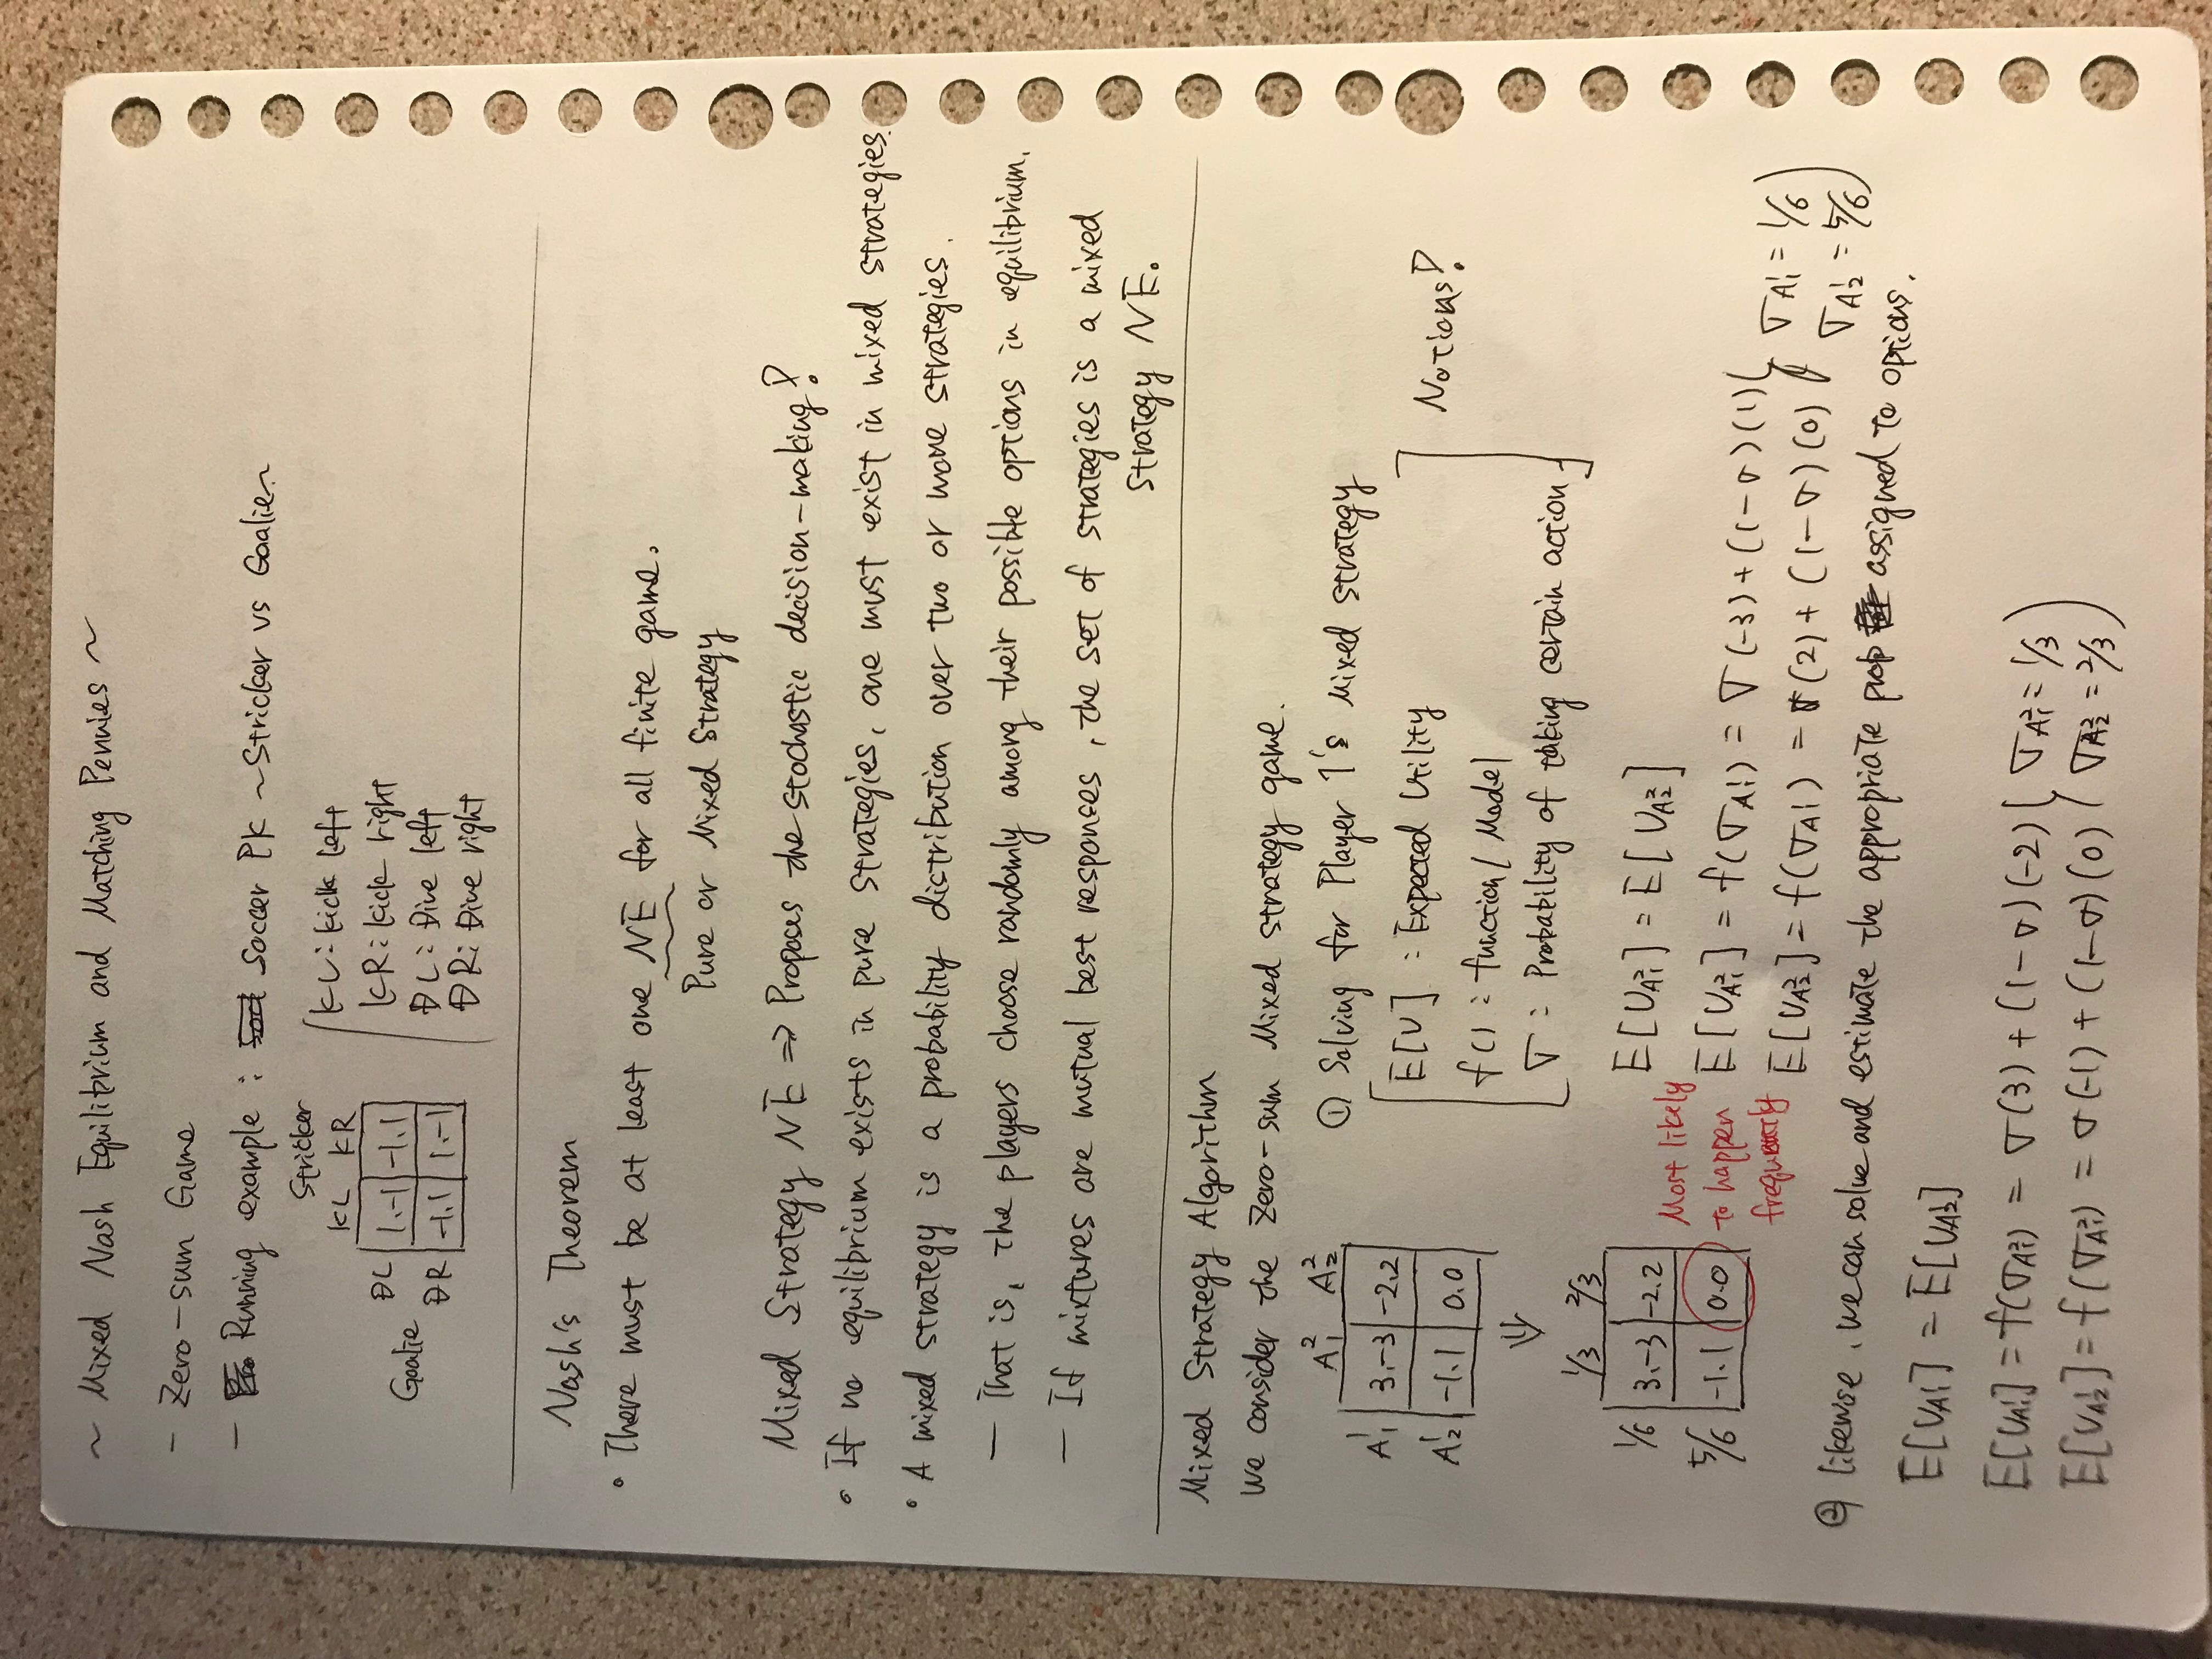 ~ Mixed Nash Equilibrium and Matching Pennies ~
- Zero-sum Game
- Running example : Soccer PK ~Stricker vs Goalie~
Stricker
KL KR
Goalie
DL 1.-1 -1.1
DR -1.1 1.-1
KL: kick left
KR: kick right
DL: Dive left
DR: Dive right
Nash's Theorem
• There must be at least one NE for all finite game.
Pure or Mixed Strategy
Mixed Strategy NE ⇒ Proposes the stochastic decision-making!
• If no equilibrium exists in pure strategies, one must exist in mixed strategies.
• A mixed strategy is a probability distribution over two or more strategies.
- That is, the players choose randomly among their possible options in equilibrium.
- If mixtures are mutual best responses, the set of strategies is a mixed
strategy NE.
Mixed Strategy Algorithm
We consider the Zero-sum Mixed strategy game.
A²₁ A²₂
A¹₁ 3.-3 -2.2
A¹₂ -1.1 0.0
⇓
1/3 2/3
1/6 3.-3 -2.2
5/6 -1.1 0.0
Most likely
to happen
frequently
① Solving for Player 1's Mixed strategy
E[U] : Expected Utility
f() : function/Model
σ : Probability of taking certain action
Notions!
E[U_A²₁] = E[U_A²₂]
E[U_A²₁] = f(σ_A¹₁) = σ(-3) + (1-σ)(1)
E[U_A²₂] = f(σ_A¹₁) = σ(2) + (1-σ)(0)
σ_A¹₁ = 1/6
σ_A¹₂ = 5/6
② likewise, we can solve and estimate the appropriate prob assigned to options.
E[U_A¹₁] = E[U_A¹₂]
E[U_A¹₁] = f(σ_A²₁) = σ(3) + (1-σ)(-2) ( σ_A²₁ = 1/3 )
E[U_A¹₂] = f(σ_A²₁) = σ(-1) + (1-σ)(0) ( σ_A²₂ = 2/3 )